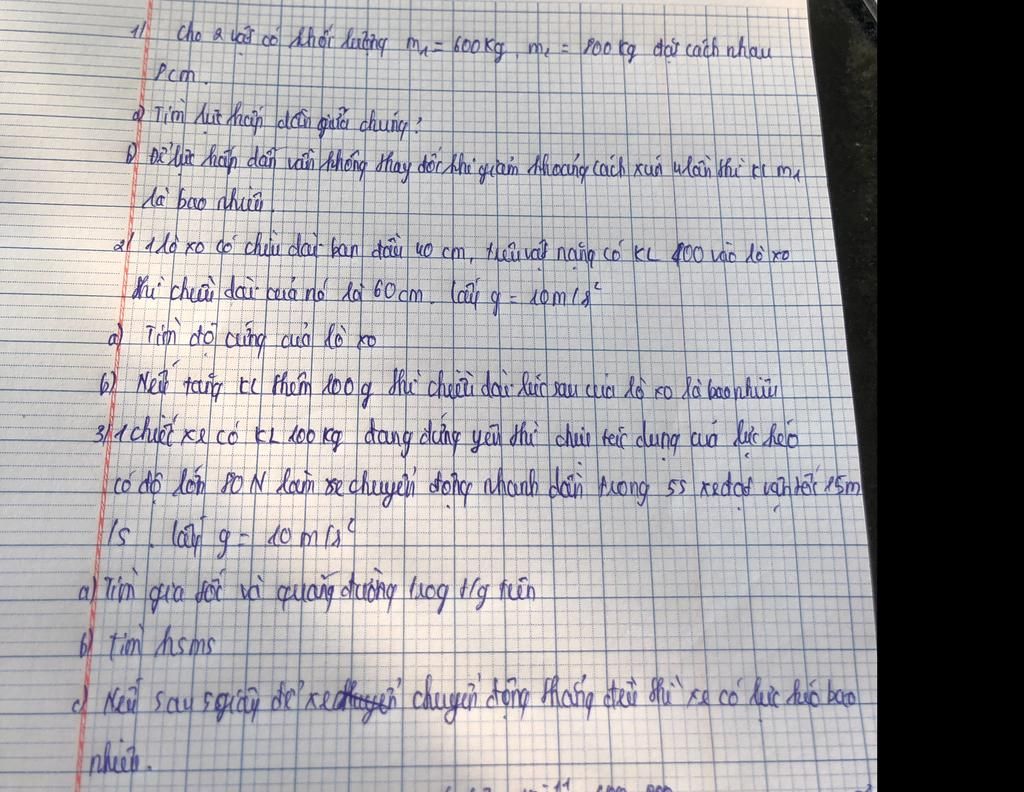 1) Cho 2 vật có khối lượng m₁ = 600kg, m₂ = 800kg đặt cách nhau
8cm.
a) Tìm lực hấp dẫn giữa chúng?
b) Để lực hấp dẫn vẫn không thay đổi khi giảm khoảng cách xuống 4 lần thì KL m₁
là bao nhiêu.
2) 1 lò xo có chiều dài ban đầu 40 cm, treo vật nặng có KL 400 vào lò xo
thì chiều dài của nó là 60cm. lấy g = 10m/s²
a) Tìm độ cứng của lò xo
b) Nếu tăng KL thêm 100g thì chiều dài lúc sau của lò xo là bao nhiêu
3) 1 chiếc xe có KL 100 kg đang đứng yên thì chịu tác dụng của lực kéo
có độ lớn 80 N làm xe chuyển động nhanh dần trong 5s xe đạt vận tốc 15m
/s. lấy g = 10 m/s²
a) Tìm gia tốc và quãng đường trog t/g trên
b) Tìm hsms
c) Nếu sau 5 giây để xe chuyển động thẳng đều thì xe có lực kéo bao
nhiêu.